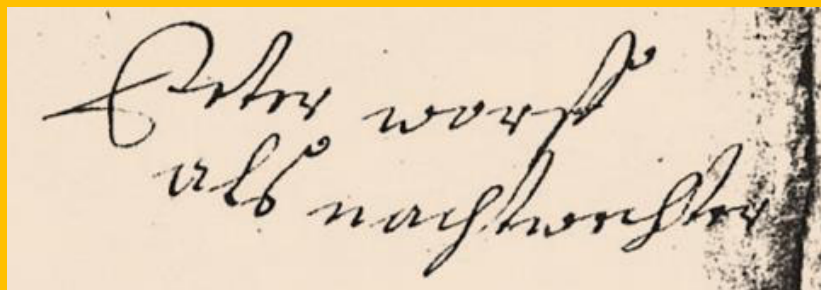 Peter worst
als nachtwechter